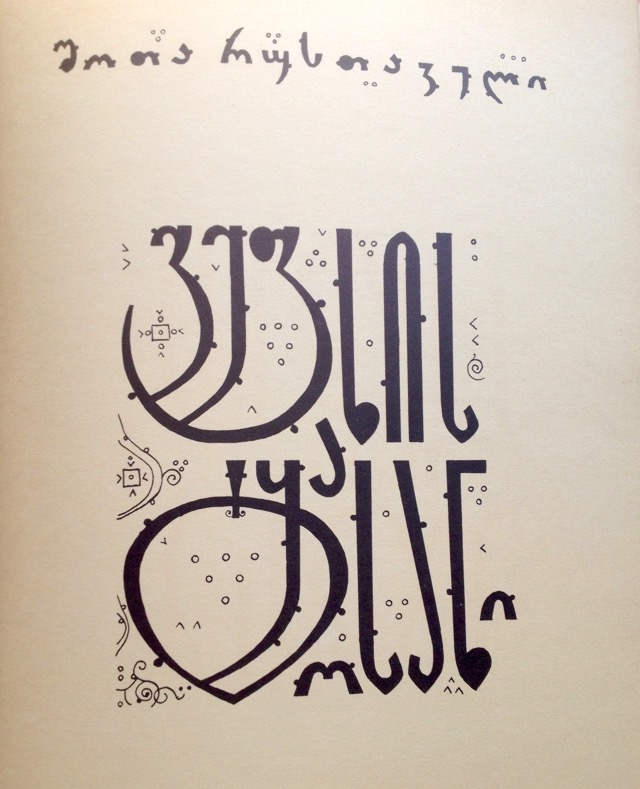 შოთა რუსთაველი
ვეფხის
ტყაოსანი